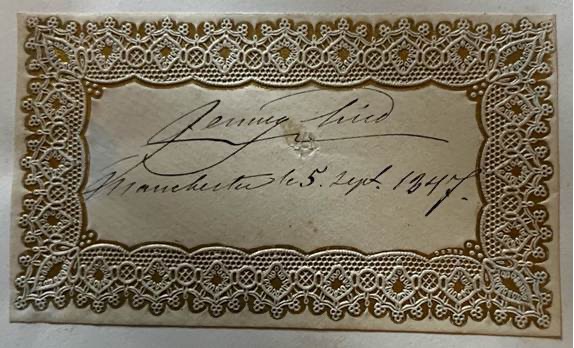 Jenny Lind
Manchester le 5. Sept. 1847.